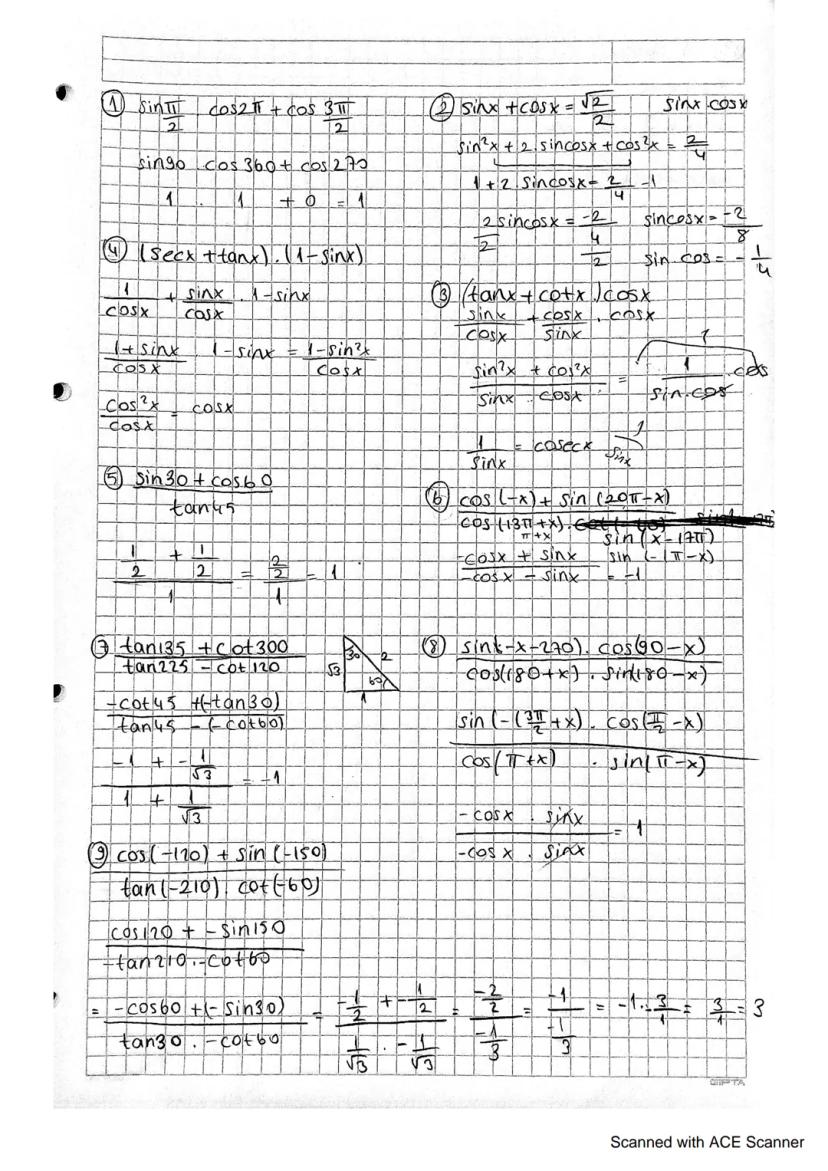 ① sin π/2 . cos2π + cos 3π/2
sin90 . cos360 + cos270
1 . 1 + 0 = 1
② sinx + cosx = √2/2 sinx.cosx
sin²x + 2.sincosx + cos²x = 2/4
1 + 2.sincosx = 2/4 - 1
2sincosx/2 = -2/4/2 sincosx = -2/8
sin.cos = -1/4
④ (secx + tanx).(1-sinx)
1/cosx + sinx/cosx . 1-sinx
1+sinx/cosx . 1-sinx = 1-sin²x/cosx
cos²x/cosx = cosx
③ (tanx + cotx).cosx
sinx/cosx + cosx/sinx . cosx
sin²x + cos²x/sinx . cosx = 1/sin.cos . cos
1/sinx = cosecx 1/sinx
⑤ sin30 + cos60/tan45
1/2 + 1/2/1 = 2/2/1 = 1
⑥ cos(-x) + sin(20π-x)/cos(13π+x). sin(x-17π)
π+x sin(-(π-x)
-cosx + sinx/-cosx - sinx = -1
⑦ tan135 + cot300/tan225 - cot120
30 2 √3 60 1
-cot45 + (-tan30)/tan45 - (-cot60)
-1 + -1/√3/1 + 1/√3 = -1
⑧ sin(-x-270). cos(90-x)/cos(180+x) . sin(180-x)
sin(-(3π/2+x) . cos(π/2-x)/cos(π+x) . sin(π-x)
-cosx . sinx/-cosx . sinx = 1
⑨ cos(-120) + sin(-150)/tan(-210). cot(-60)
cos120 + -sin150/-tan210.-cot60
= -cos60 + (-sin30)/tan30 . -cot60 = -1/2 + -1/2/1/√3 . -1/√3 = -2/2/-1/3 = -1/-1/3 = -1.-3/1 = 3/1 = 3
GIPTA
Scanned with ACE Scanner